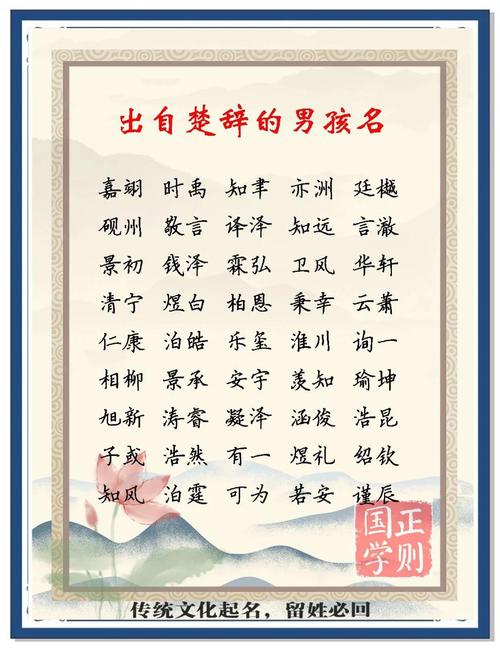 出自楚辞的男孩名
嘉翊 时禹 知聿 亦洲 廷樾
砚州 敬言 译泽 知远 言澈
景初 钱泽 霖弘 卫风 华轩
清宁 煜白 柏恩 秉幸 云萧
仁康 泊皓 乐玺 淮川 询一
相柳 景承 安宇 羡知 瑜坤
旭新 涛睿 凝泽 涵俊 浩昆
子或 浩然 有一 煜礼 绍钦
知风 泊霆 可为 若安 谨辰
正则
国学
传统文化起名，留姓必回